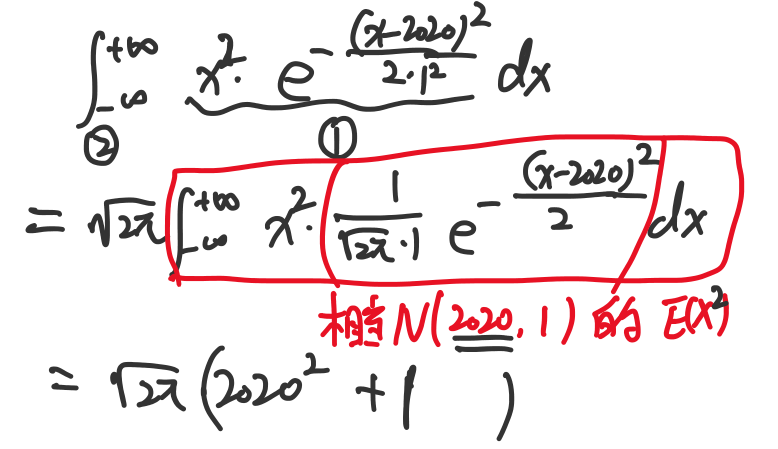 ∫_{-∞}^{+∞} x²· e^{-\frac{(x-2020)²}{2·1²}} dx
② ①
= √2π ∫_{-∞}^{+∞} x²· \frac{1}{√2π·1} e^{-\frac{(x-2020)²}{2}} dx
相当 N(2020, 1) 的 E(X²)
= √2π (2020² + 1 )